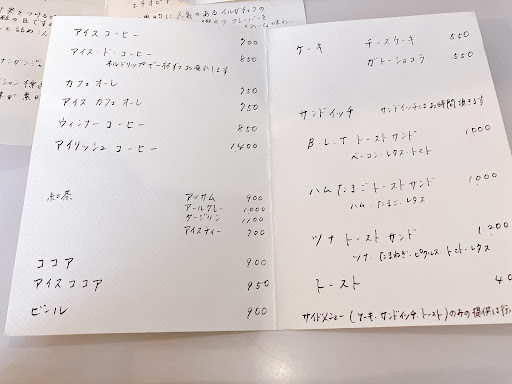 アイスコーヒー 700
アイス・ド・コーヒー 850
ネルドリップで一杯ずつお淹れします
カフェオーレ 750
アイス カフェオーレ 750
ウィンナーコーヒー 850
アイリッシュ コーヒー 1400
紅茶 アッサム 900
アールグレー 1000
ダージリン 1100
アイスティー 700
ココア 900
アイスココア 950
ビール 900
ケーキ チーズケーキ 550
ガトーショコラ 550
サンドイッチ サンドイッチはお時間頂きます
B・L・T トーストサンド 1000
ベーコン・レタス・トマト
ハムたまごトーストサンド 1000
ハム・たまご・レタス
ツナ トーストサンド 1200
ツナ・たまねぎ・ピクルス・トマト・レタス
トースト 40
サイドメニュー(ケーキ・サンドイッチ・トースト)のみの提供は行